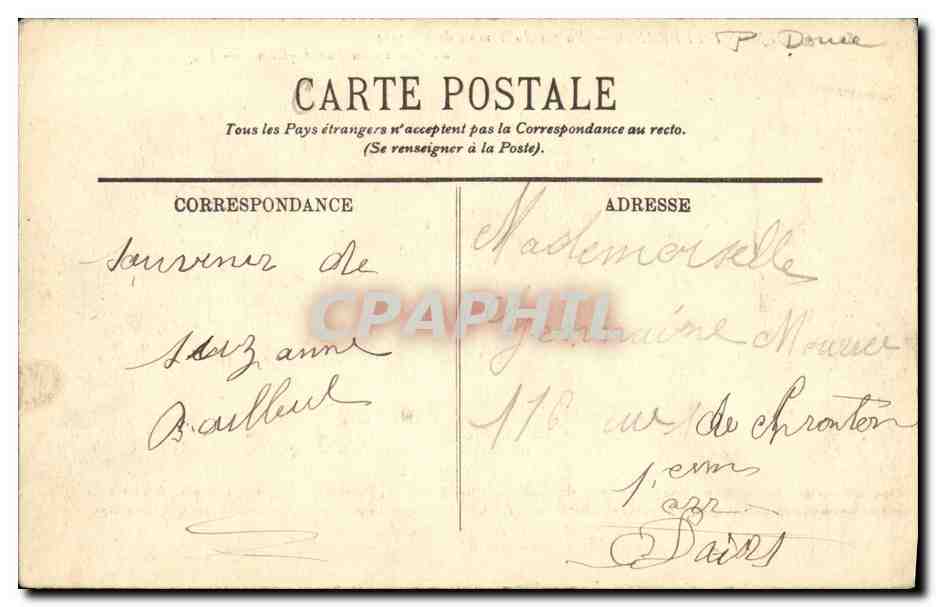 P. Doué
CARTE POSTALE
Tous les Pays étrangers n'acceptent pas la Correspondance au recto.
(Se renseigner à la Poste).
CORRESPONDANCE
souvenir de
suzanne
Bailleul
ADRESSE
Mademoiselle
Germaine Mourier
116 rue de
1er
arr
Paris
CPAPHIL